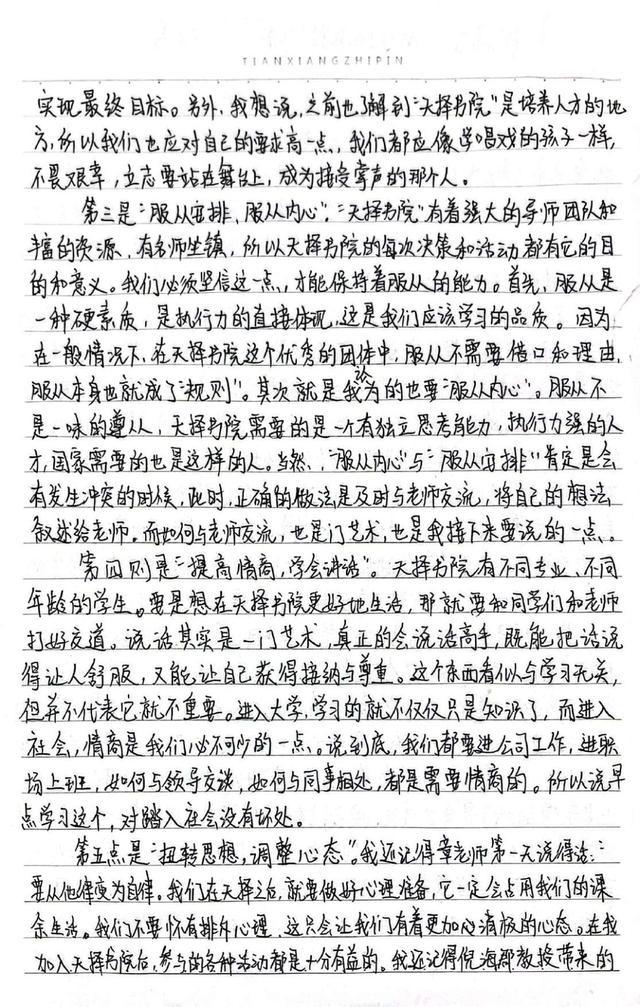 TIANXIANGZHIPIN
实现最终目标。另外,我想说,之前也了解到“天择书院”是培养人才的地
方,所以我们也应对自己的要求高一点,我们都应像学唱戏的孩子一样,
不畏艰辛,立志要站在舞台上,成为接受掌声的那个人。
第三是“服从安排、服从内心”。“天择书院”有着强大的导师团队和
丰富的资源,有名师坐镇,所以天择书院的每次决策和活动都有它的目
的和意义。我们必须坚信这一点,才能保持着服从的能力。首先,服从是
一种硬素质,是执行力的直接体现,这是我们应该学习的品质。因为
在一般情况下,在天择书院这个优秀的团体中,服从不需要借口和理由,
服从本身也就成了“规则”。其次就是我认为的也要“服从内心”。服从不
是一味的尊从,天择书院需要的是一个有独立思考能力,执行力强的人
才,国家需要的也是这样的人。当然,“服从内心”与“服从安排”肯定是会
有发生冲突的时候,此时,正确的做法是及时与老师交流,将自己的想法
叙述给老师。而如何与老师交流,也是门艺术,也是我接下来要说的一点。
第四则是“提高情商,学会讲话”。天择书院有不同专业、不同
年龄的学生。要是想在天择书院更好地生活,那就要和同学们和老师
打好交道。说话其实是一门艺术,真正的会说话高手,既能把话说
得让人舒服,又能让自己获得接纳与尊重。这个东西看似与学习无关,
但并不代表它就不重要。进入大学,学习的就不仅仅只是知识了,而进入
社会,情商是我们必不可少的一点。说到底,我们都要进公司工作,进职
场上班,如何与领导交谈,如何与同事相处,都是需要情商的。所以说早
点学习这个,对踏入社会没有坏处。
第五点是“扭转思想,调整心态”。我还记得章老师第一天说得话:
要从他律变为自律。我们在天择之后,就要做好心理准备,它一定会占用我们的课
余生活。我们不要怀有排斥心理,这只会让我们有着更加心消极的心态。在我
加入天择书院后,参与的各种活动都是十分有益的。我还记得倪海郡教授带来的